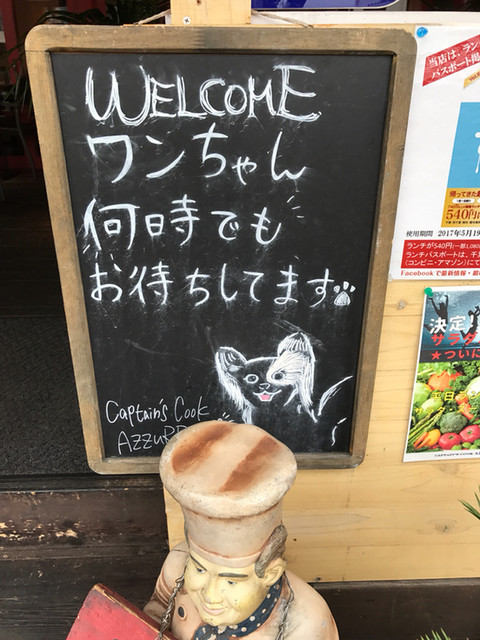 WELCOME
ワンちゃん
何時でも
お待ちしてます
Captain's Cook
当店は、ラン
パスポート掲
帰ってきた
540円
使用期間 2017年5月19
ランチが540円
ランチパスポートは、千
(コンビニ・アマゾン)にて
Facebookで最新情報・
決定
サラダ
★ついに